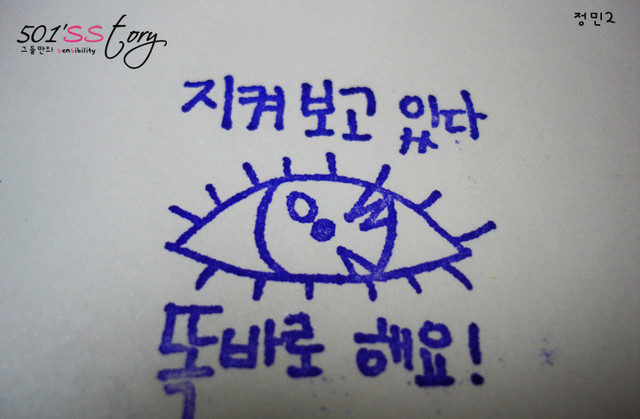 501'SStory
그들만의 sensibility
정민2
지켜보고 있다
똑바로 해요!